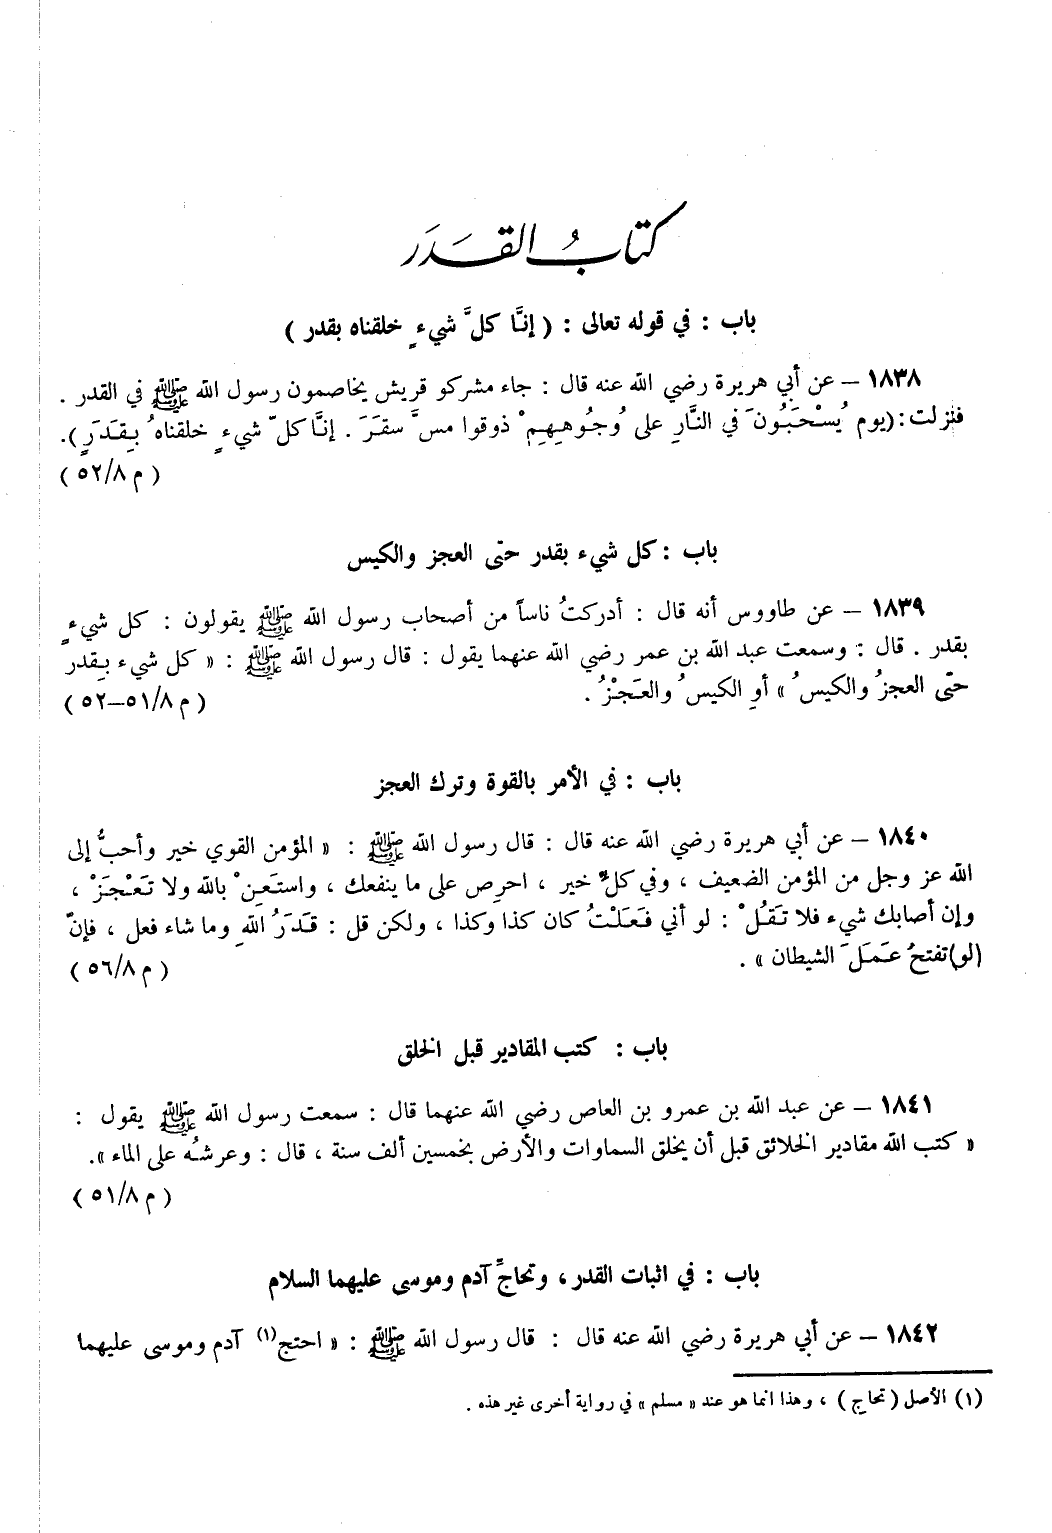 كتابُ القَدَر
باب : في قوله تعالى : ( إنَّا كلَّ شيءٍ خلقناه بقدر )
١٨٣٨ – عن أبي هريرة رضي الله عنه قال : جاء مشركو قريش يخاصمون رسول الله ﷺ في القدر .
فنزلت : (يوم يُسْحَبُونَ في النَّارِ على وُجُوهِهِمْ ذوقوا مسَّ سقَرَ . إنَّا كلّ شيءٍ خلقناهُ بِقَدَرٍ).
( م ٥٢/٨ )
باب : كل شيء بقدر حتّى العجز والكيس
١٨٣٩ – عن طاووس أنه قال : أدركتُ ناساً من أصحاب رسول الله ﷺ يقولون : كل شيءٍ
بقدر . قال : وسمعت عبد الله بن عمر رضي الله عنهما يقول : قال رسول الله ﷺ : « كل شيء بِقدرٍ
حتّى العجزُ والكيسُ » أوِ الكيسُ والعَجْزُ .
( م ٥١/٨–٥٢ )
باب : في الأمر بالقوة وترك العجز
١٨٤٠ – عن أبي هريرة رضي الله عنه قال : قال رسول الله ﷺ : « المؤمن القوي خير وأحبُّ إلى
الله عز وجل من المؤمن الضعيف ، وفي كلٍّ خير ، احرِص على ما ينفعك ، واستَعِنْ بالله ولا تَعْجَزْ ،
وإن أصابك شيء فلا تَقُلْ : لو أني فَعَلْتُ كان كذا وكذا ، ولكن قل : قَدَرُ اللهِ وما شاء فعل ، فإنّ
(لو) تفتحُ عَمَلَ الشيطان » .
( م ٥٦/٨ )
باب : كتب المقادير قبل الخلق
١٨٤١ – عن عبد الله بن عمرو بن العاص رضي الله عنهما قال : سمعت رسول الله ﷺ يقول :
« كتب الله مقادير الخلائق قبل أن يخلق السماوات والأرض بخمسين ألف سنة ، قال : وعرشهُ على الماء ».
( م ٥١/٨ )
باب : في اثبات القدر ، وتحاجِّ آدم وموسى عليهما السلام
١٨٤٢ – عن أبي هريرة رضي الله عنه قال : قال رسول الله ﷺ : « احتج(١) آدم وموسى عليهما
(١) الأصل ( تحاج ) ، وهذا انما هو عند « مسلم » في رواية أخرى غير هذه .